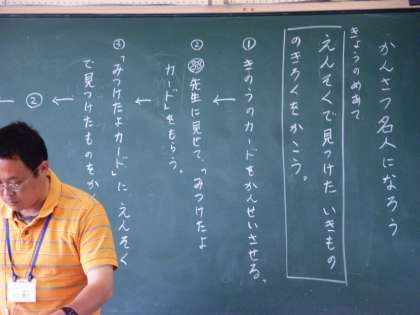 かんさつ名人になろう
きょうのめあて
えんそくで見つけたいきもの
のきろくをかこう。
① きのうのカードをかんせいさせる。
↓
② 先生に見せて、「みつけたよ
カード」をもらう。
↓
③ 「みつけたよカード」にえんそく
で見つけたものをか
↓
②
↓